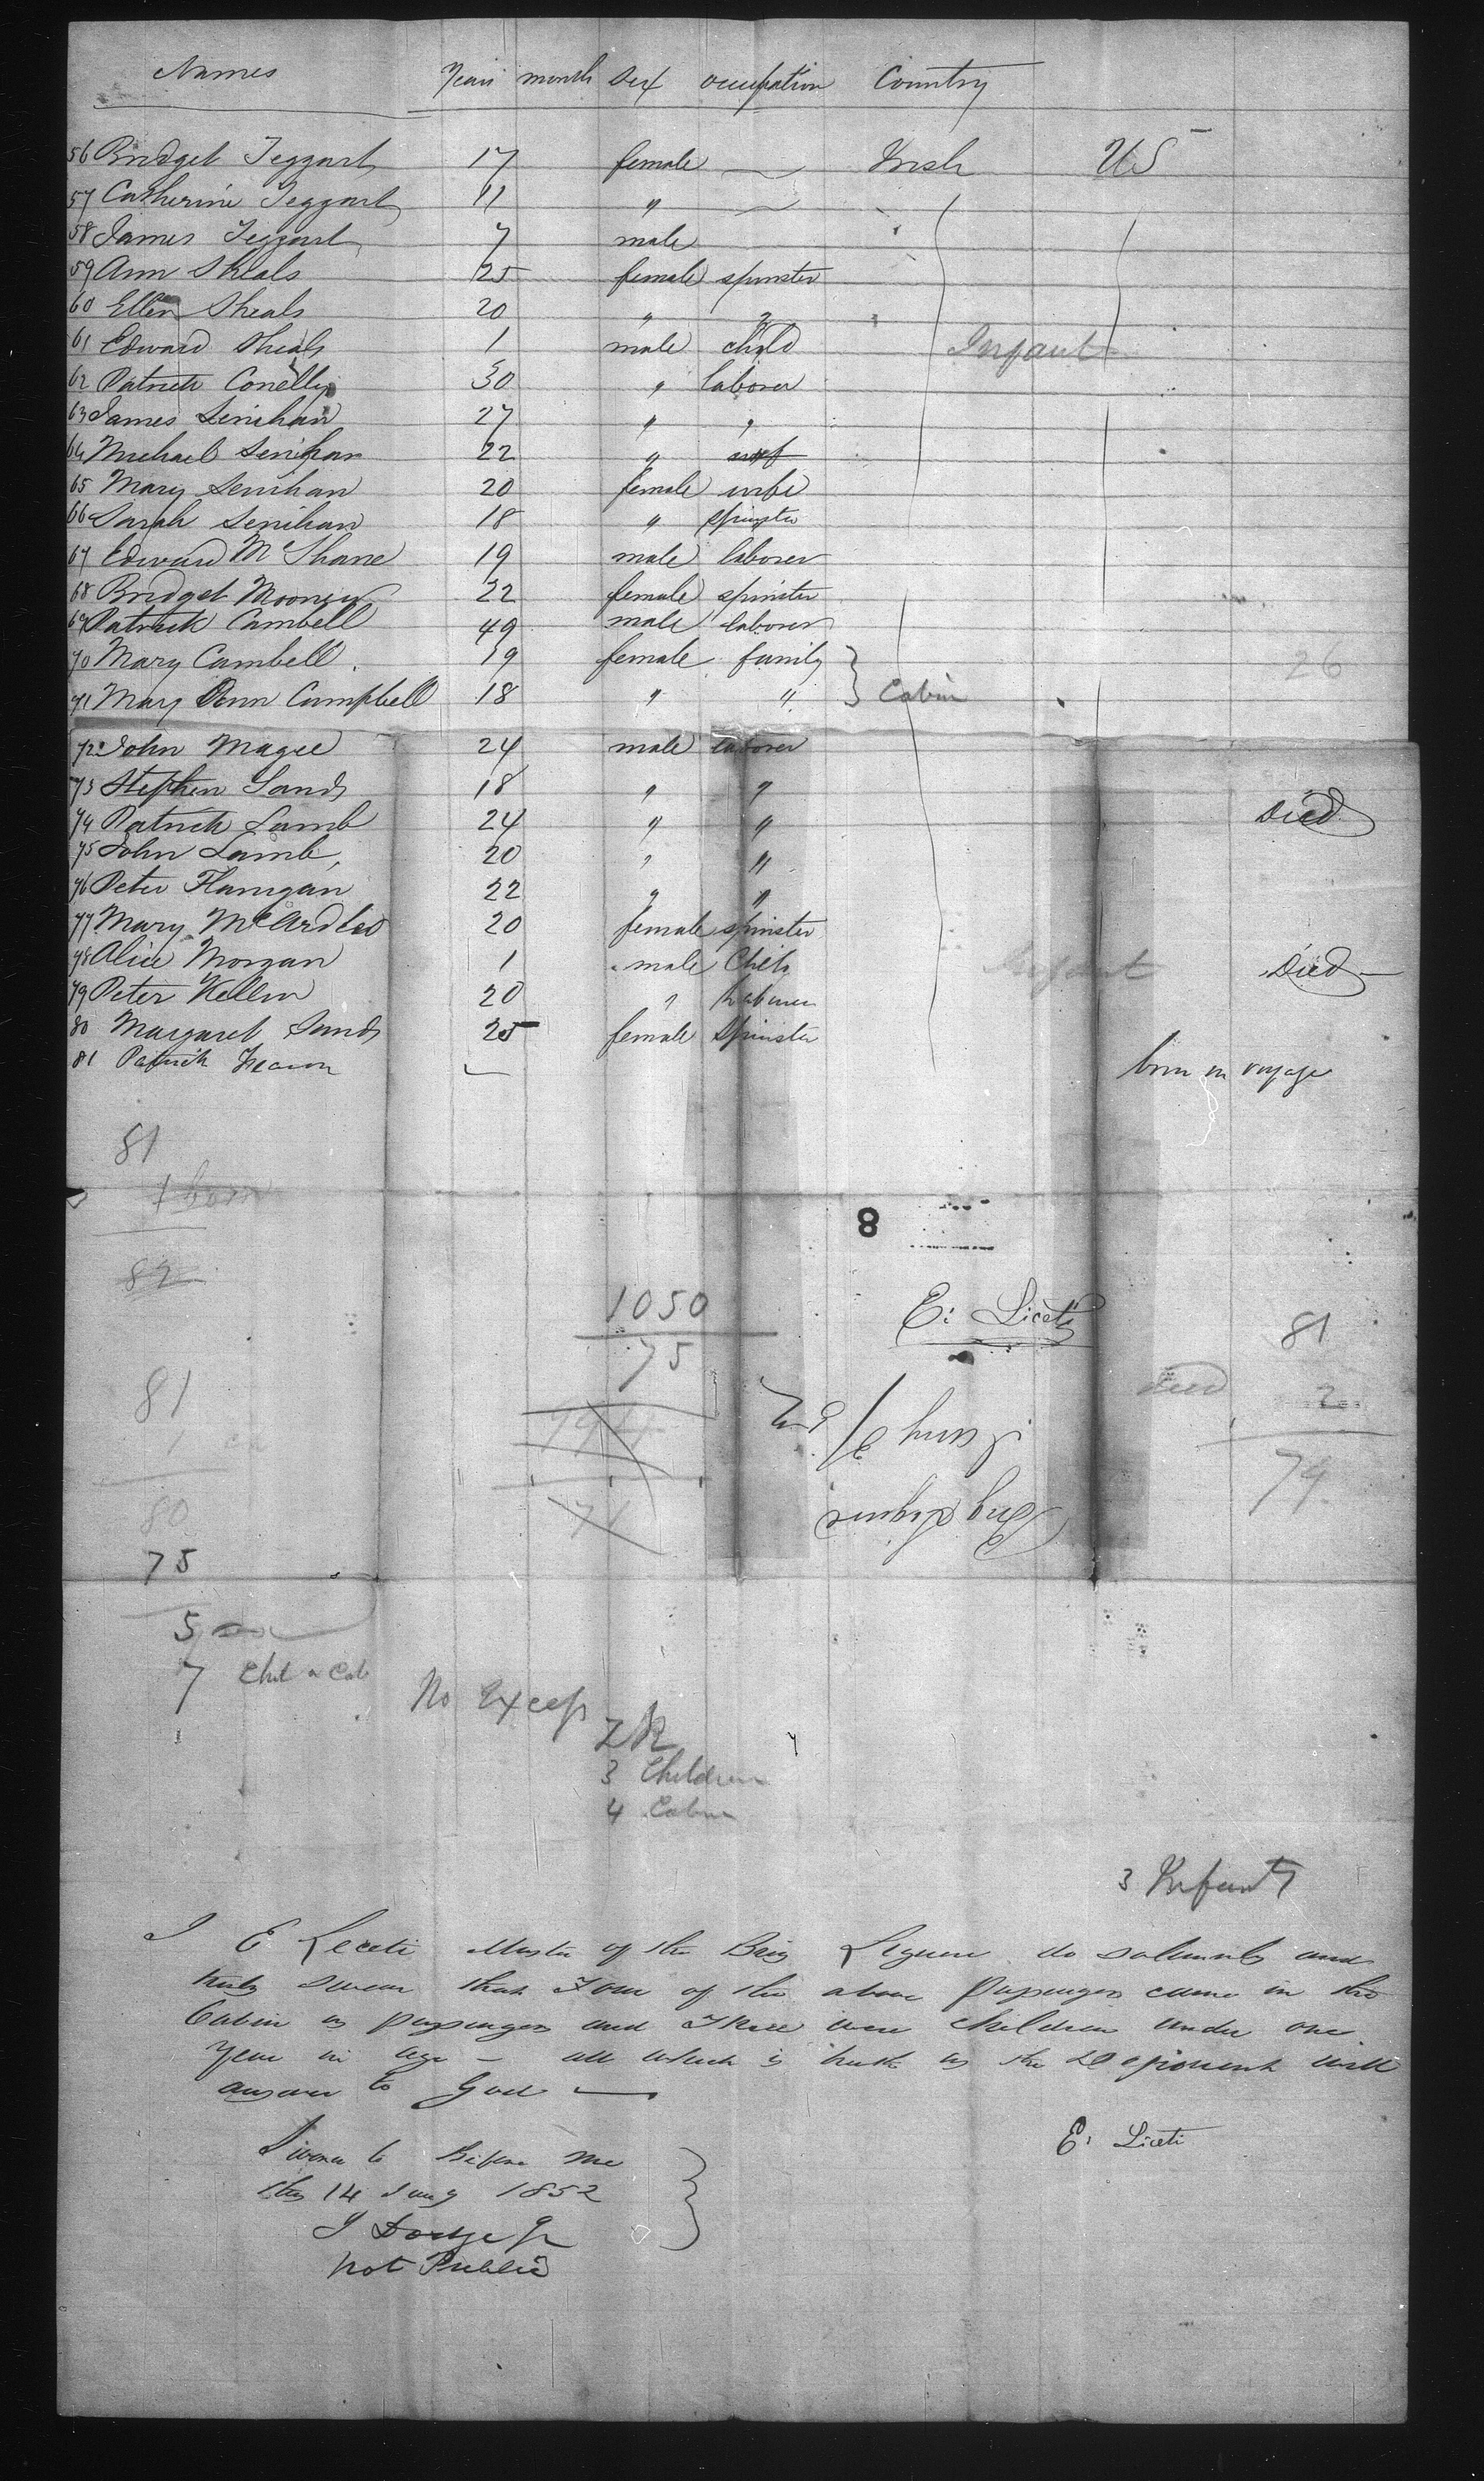 Names Years month Sex occupation Country
56 Bridget Teggart 17 female — Irish US
57 Catherine Teggart 11 " —
58 James Teggart 7 male
59 Ann Sheals 25 female spinster
60 Ellen Sheals 20 " "
61 Edward Sheals 1 male child Infant
62 Patrick Conelly 30 " laborer
63 James Lenihan 27 " "
64 Michael Lenihan 22 "
65 Mary Lenihan 20 female wife
66 Sarah Lenihan 18 " spinster
67 Edward McShane 19 male laborer
68 Bridget Mooney 22 female spinster
69 Patrick Cambell 49 male laborer
70 Mary Cambell 19 female family } 26
71 Mary Ann Campbell 18 " " } Cabin
72 John Magee 24 male laborer
73 Stephen Sands 18 " " Died
74 Patrick Lamb 24 " "
75 John Lamb 20 " "
76 Peter Flanigan 22 " "
77 Mary McArdle 20 female spinster
78 Alice Morgan 1 male Child Infant Died —
79 Peter 20 " Laborer
80 Margaret Sands 25 female Spinster
81 Patrick — born on voyage
81
1 born
82
8
1050
75
E: Liceti
81
died 2
79
81
1
80
71
Brig Ligure
75
5
7 Chil & Cab
No Excess
3 Children
4 Cabin
3 Infants
I E Liceti Master of the Brig Ligure do solemnly and
truly swear that Four of the above passengers came in the
Cabin as passengers and Three were children under one
year in age — all which is truth as the Deponent will
answer to God —
E: Liceti
Sworn to Before me
this 14 1852
J Dodge Jr
Not Public